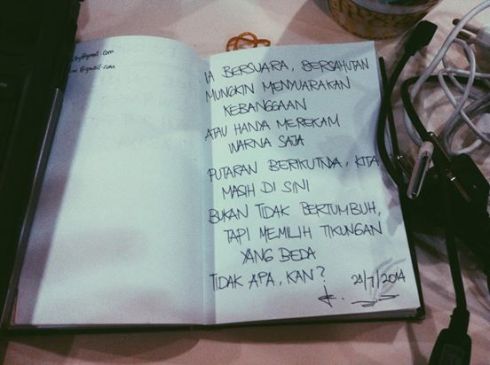 @gmail.com
@gmail.com
IA BERSUARA, BERSAHUTAN
MUNGKIN MENYUARAKAN
KEBANGGAAN
ATAU HANYA MEREKAM
WARNA SAJA
PUTARAN BERIKUTNYA, KITA
MASIH DI SINI
BUKAN TIDAK BERTUMBUH,
TAPI MEMILIH TIKUNGAN
YANG BEDA
TIDAK APA, KAN?
29/7/2014